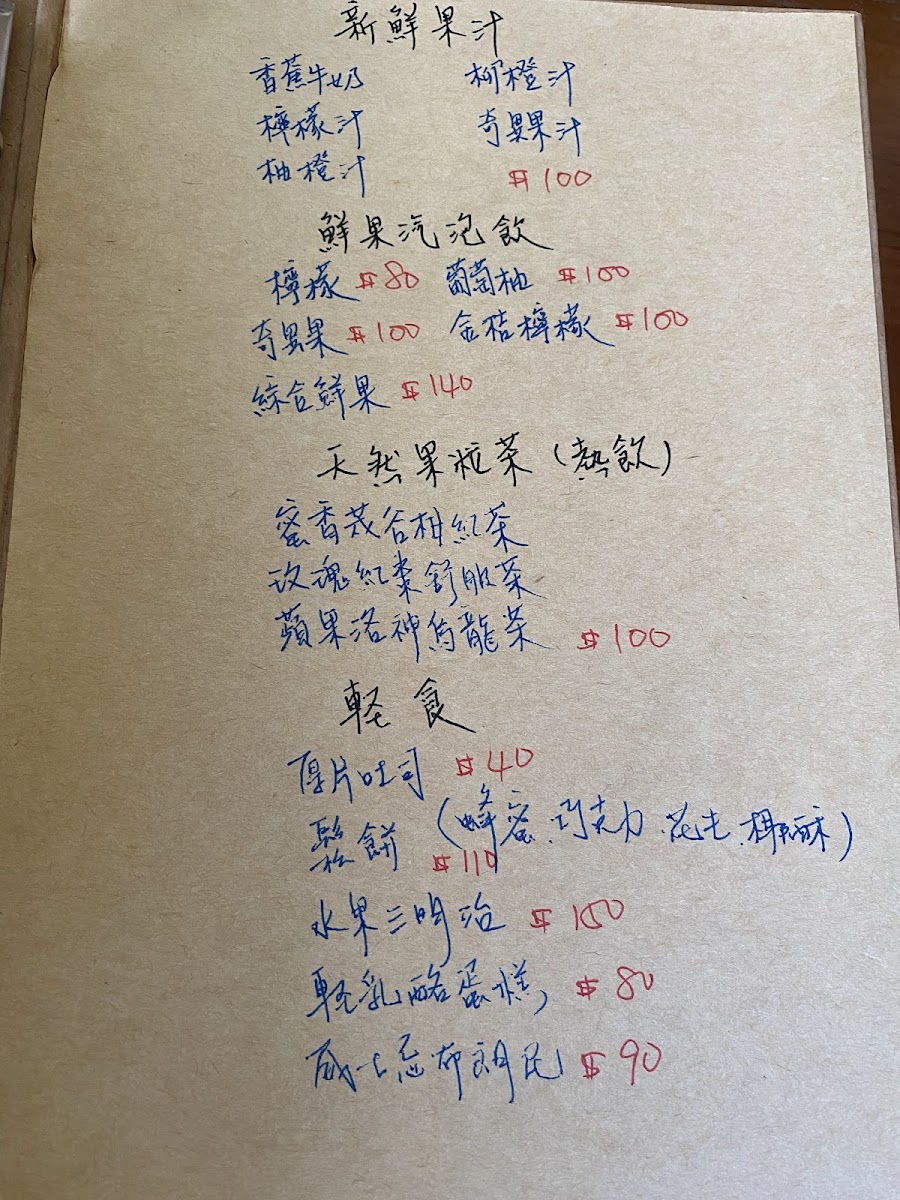 新鮮果汁
香蕉牛奶 柳橙汁
檸檬汁 奇異果汁
柚橙汁 $100
鮮果汽泡飲
檸檬 $80 葡萄柚 $100
奇異果 $100 金桔檸檬 $100
綜合鮮果 $140
天然果粒茶(熱飲)
蜜香茂谷柑紅茶
玫瑰紅棗舒眠茶
蘋果洛神烏龍茶 $100
軽食
厚片吐司 $40
鬆餅 (蜂蜜.巧克力.花生.椰香酥)
$110
水果三明治 $150
軽乳酪蛋糕 $80
威士忌布朗尼 $90